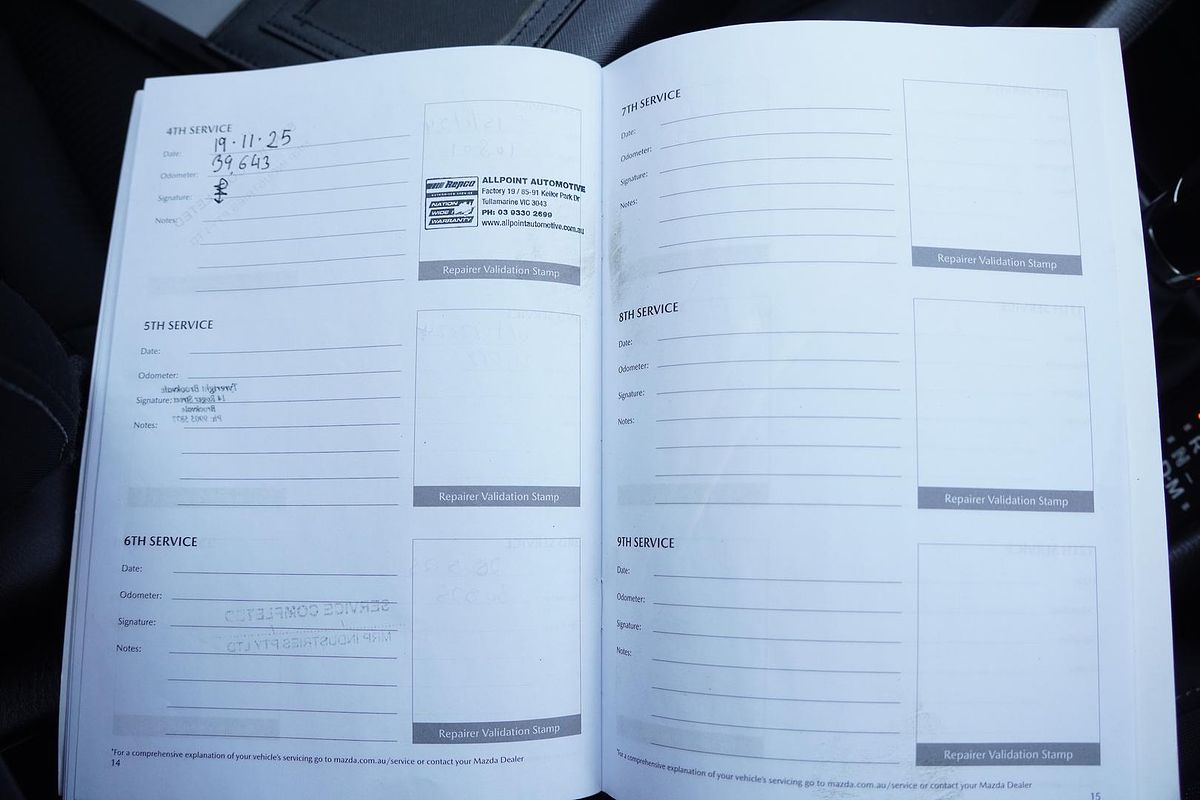 4TH SERVICE
Date: 19·11·25
Odometer: 39,643
Signature:
Notes:
Repco
NATION
WIDE
WARRANTY
ALLPOINT AUTOMOTIVE
Factory 19 / 85-91 Keilor Park Dr
Tullamarine VIC 3043
PH: 03 9330 2699
www.allpointautomotive.com.au
Repairer Validation Stamp
5TH SERVICE
Date:
Odometer:
Signature:
Notes:
Repairer Validation Stamp
6TH SERVICE
Date:
Odometer:
Signature:
Notes:
SERVICE COMPLETED
MRP INDUSTRIES PTY LTD
Repairer Validation Stamp
*For a comprehensive explanation of your vehicle's servicing go to mazda.com.au/service or contact your Mazda Dealer
14
7TH SERVICE
Date:
Odometer:
Signature:
Notes:
Repairer Validation Stamp
8TH SERVICE
Date:
Odometer:
Signature:
Notes:
Repairer Validation Stamp
9TH SERVICE
Date:
Odometer:
Signature:
Notes:
Repairer Validation Stamp
*For a comprehensive explanation of your vehicle's servicing go to mazda.com.au/service or contact your Mazda Dealer
15